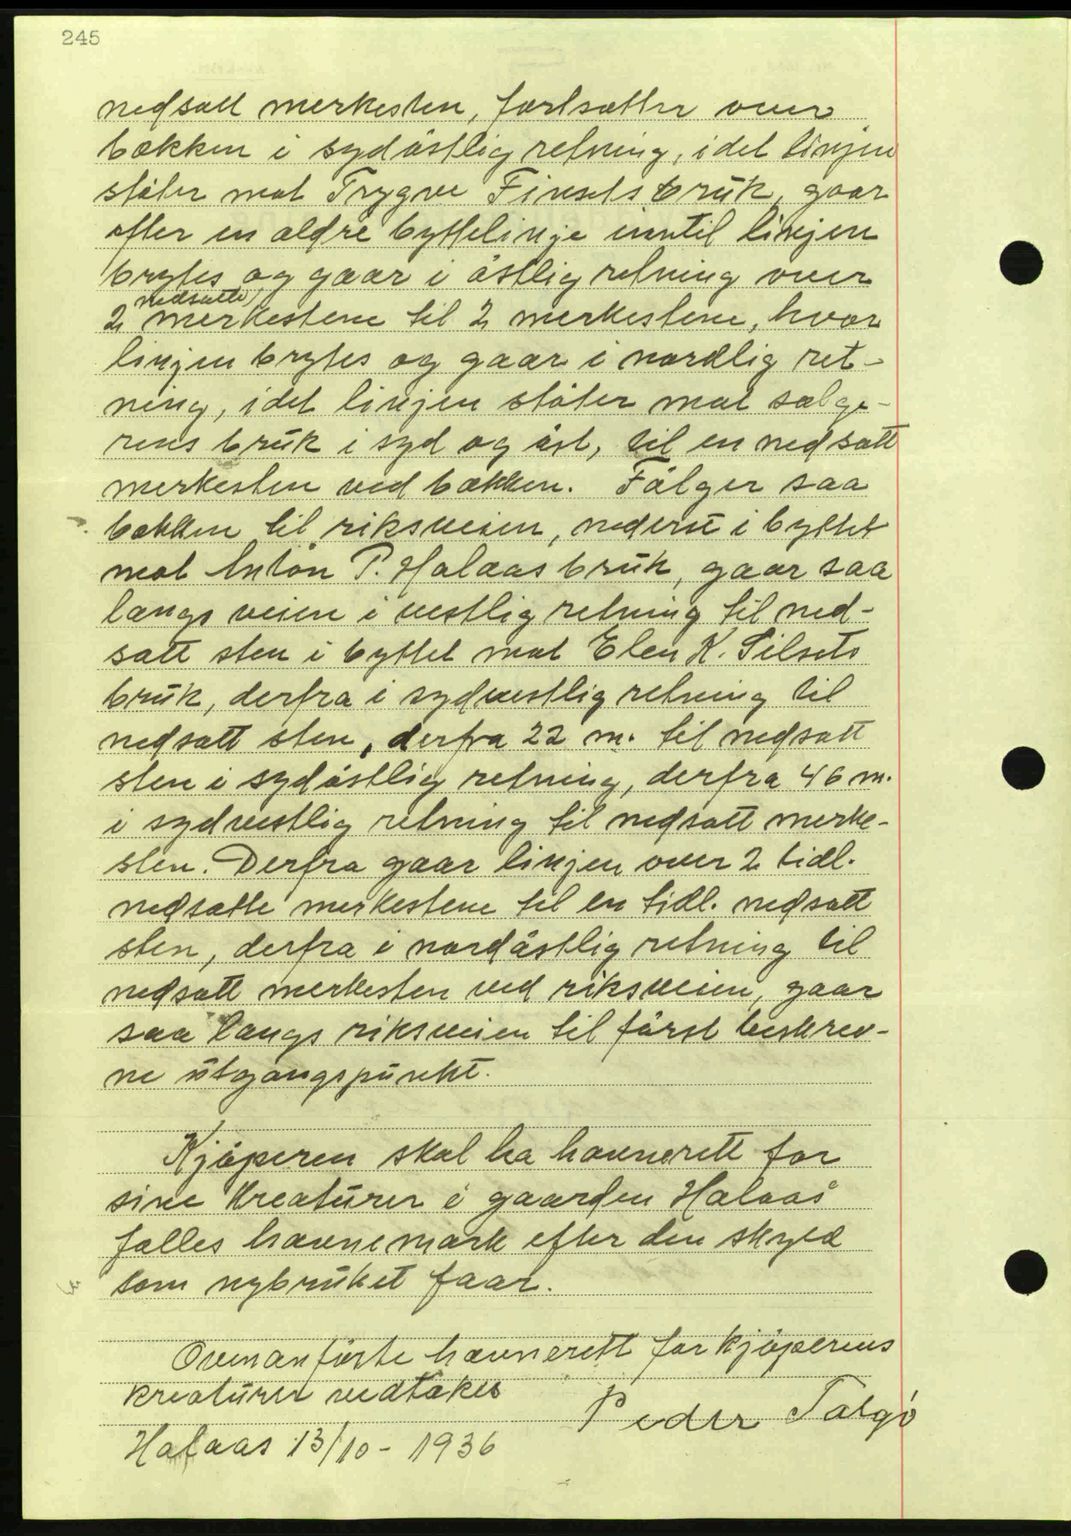 245
nedsatt merkesten, fortsætter over
bækken i sydöstlig retning, idet linjen
stöter mot Trygve Finsets bruk, gaar
efter en ældre byttelinje inntil linjen
brytes og gaar i östlig retning over
nedsatte
2 merkestene til 2 merkestene, hvor
linjen brytes og gaar i nordlig ret-
ning, idet linjen stöter mot sælge-
rens bruk i syd og öst, til en nedsatt
merkesten ved bækken. Fölger saa
bækken til riksveien, nederst i byttet
mot Anton P. Halaas bruk, gaar saa
langs veien i vestlig retning til ned-
satt sten i byttet mot Elen K. Silsets
bruk, derfra i sydvestlig retning til
nedsatt sten, derfra 22 m. til nedsatt
sten i sydöstlig retning, derfra 46 m.
i sydvestlig retning til nedsatt merke-
sten. Derfra gaar linjen over 2 tidl.
nedsatte merkestene til en tidl. nedsatt
sten, derfra i nordöstlig retning til
nedsatt merkesten ved riksveien, gaar
saa langs riksveien til först beskrev-
ne utgangspunkt.
Kjöperen skal ha havnerett for
sine kreaturer i gaarden Halaas
fælles havnemark efter den skyld
som nybruket faar.
Ovenanförte havnerett for kjöperens
kreaturer vedtakes
Peder Talgö
Halaas 13/10 - 1936